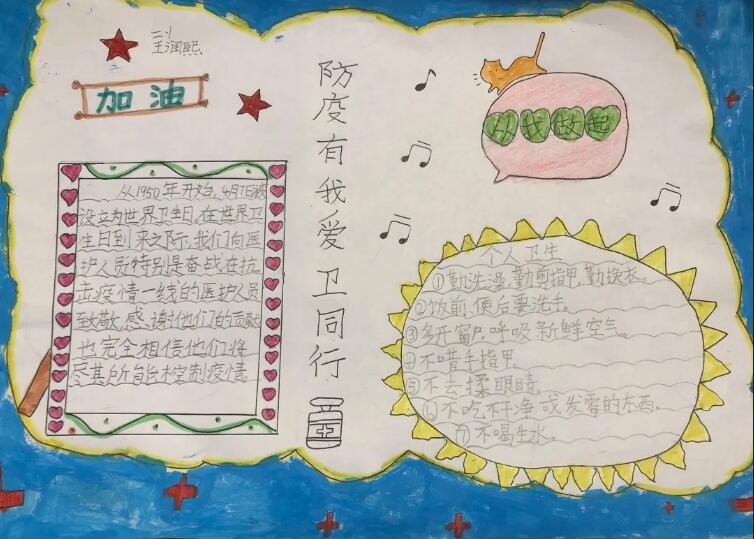 二1
王润熙
加油
防疫有我爱卫同行
从我做起
从1950年开始,4月7日被
设立为世界卫生日。在世界卫
生日到来之际,我们向医
护人员特别是奋战在抗
击疫情一线的医护人员
致敬,感谢他们的贡献
也完全相信他们将
尽其所能控制疫情。
个人卫生
①勤洗澡,勤剪指甲,勤换衣。
②饭前、便后要洗手。
③多开窗户,呼吸新鲜空气。
④不啃手指甲。
⑤不去揉眼睛。
⑥不吃不干净或发霉的东西。
⑦不喝生水。